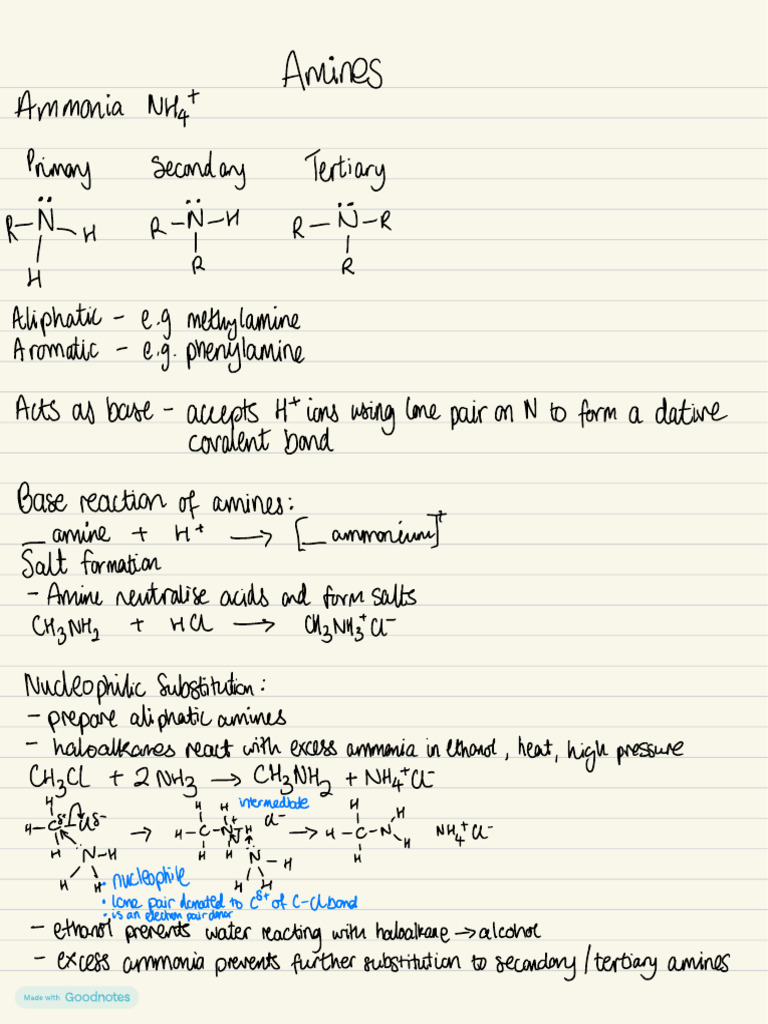 Amines
Ammonia NH₄⁺
Primary Secondary Tertiary
R–N̈–H R–N̈–H R–N̈–R
H R R
Aliphatic – e.g methylamine
Aromatic – e.g. phenylamine
Acts as base – accepts H⁺ ions using lone pair on N to form a dative
covalent bond
Base reaction of amines:
__ amine + H⁺ → [__ ammonium]⁺
Salt formation
– Amine neutralise acids and form salts
CH₃NH₂ + HCl → CH₃NH₃⁺Cl⁻
Nucleophilic Substitution:
– prepare aliphatic amines
– haloalkanes react with excess ammonia in ethanol, heat, high pressure
CH₃Cl + 2NH₃ → CH₃NH₂ + NH₄⁺Cl⁻
H H H intermediate H
H–Cδ⁺ Clδ⁻ → H–C–N⁺–H Cl⁻ → H–C–N H H NH₄⁺Cl⁻
H N–H H H N–H H
H H H H
• nucleophile
• lone pair donated to Cδ⁺ of C–Cl bond
• is an electron pair donor
– ethanol prevents water reacting with haloalkane → alcohol
– excess ammonia prevents further substitution to secondary/tertiary amines
Made with Goodnotes